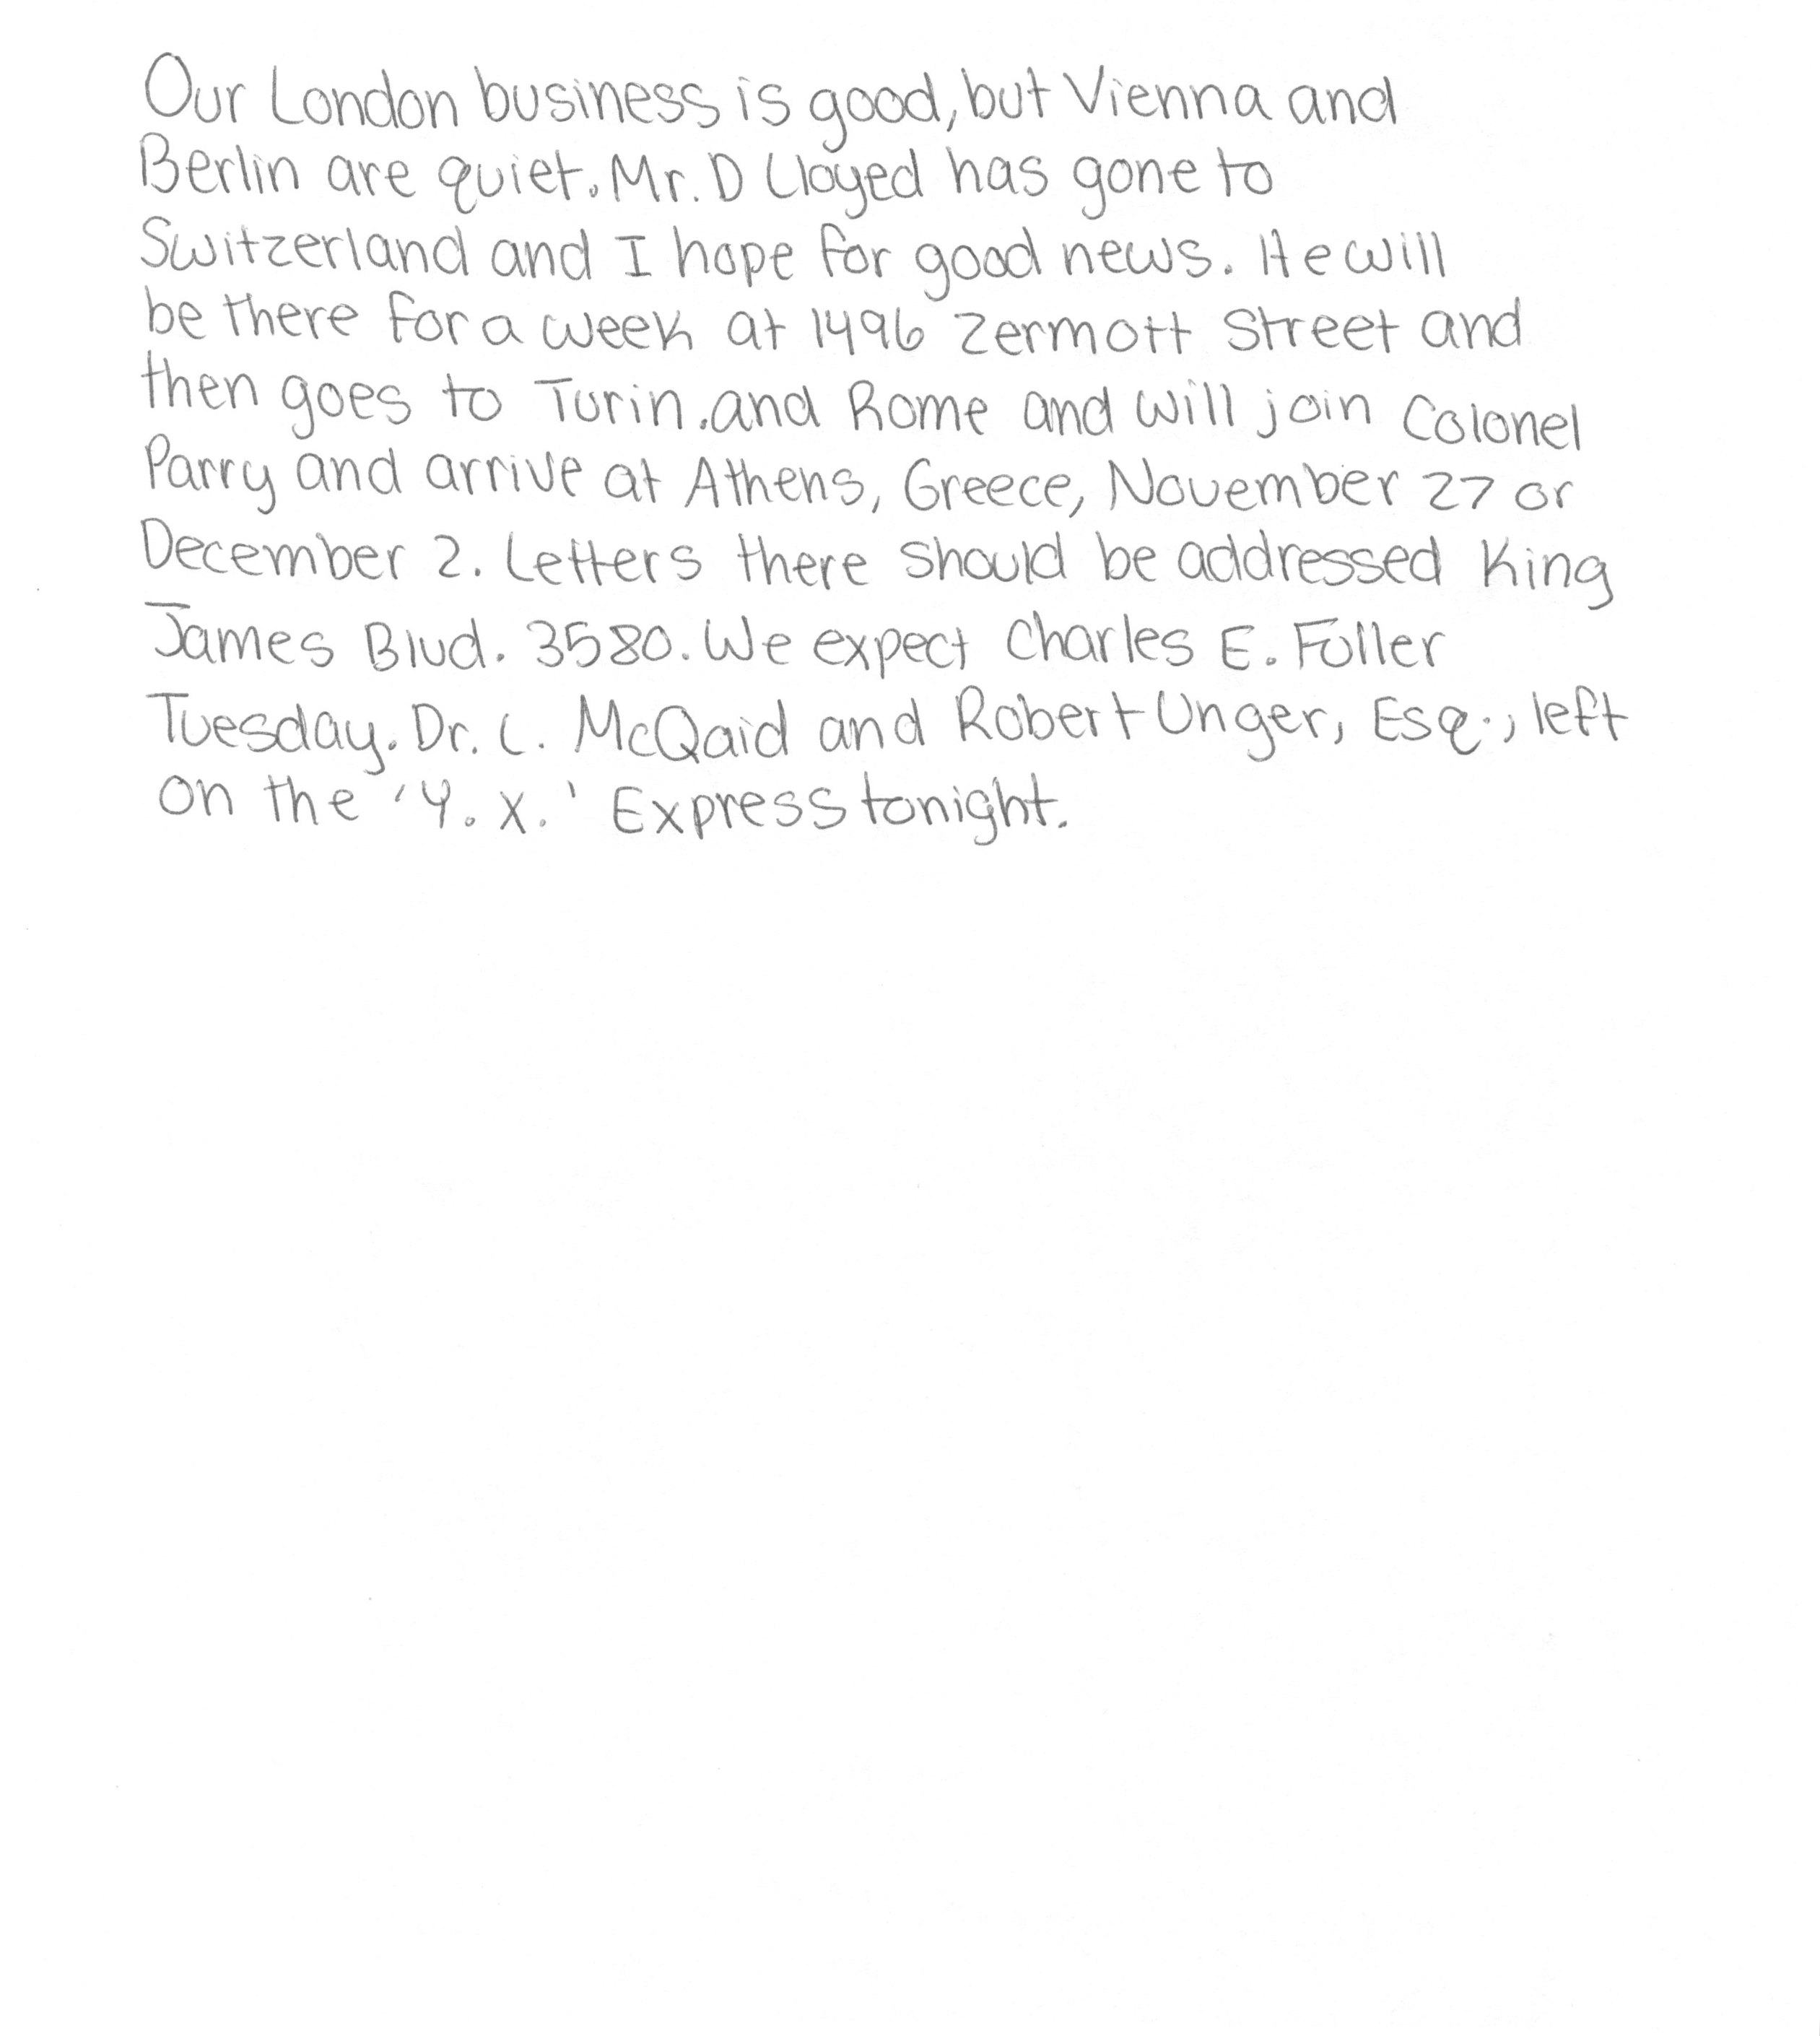 Our London business is good, but Vienna and
Berlin are quiet. Mr. D Lloyed has gone to
Switzerland and I hope for good news. He will
be there for a week at 1496 Zermott Street and
then goes to Turin.and Rome and will join Colonel
Parry and arrive at Athens, Greece, November 27 or
December 2. Letters there should be addressed King
James Blvd. 3580. We expect Charles E. Fuller
Tuesday. Dr. L. McQaid and Robert Unger, Esq., left
on the 'Y. X.' Express tonight.